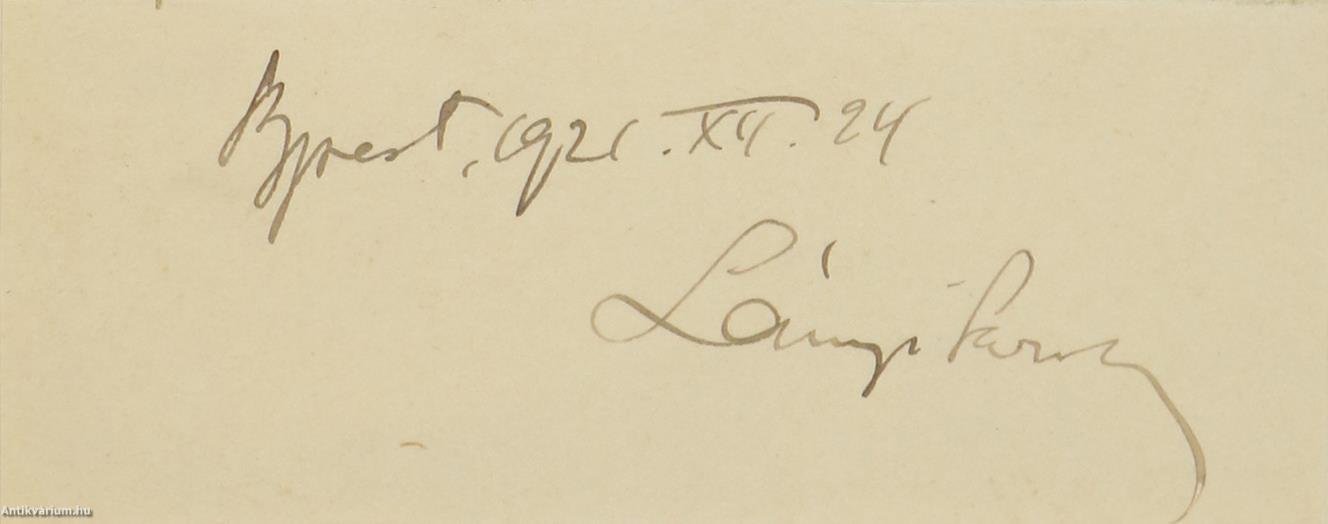 Bpest, 1921. XII. 24
Lányi
Antikvárium.hu